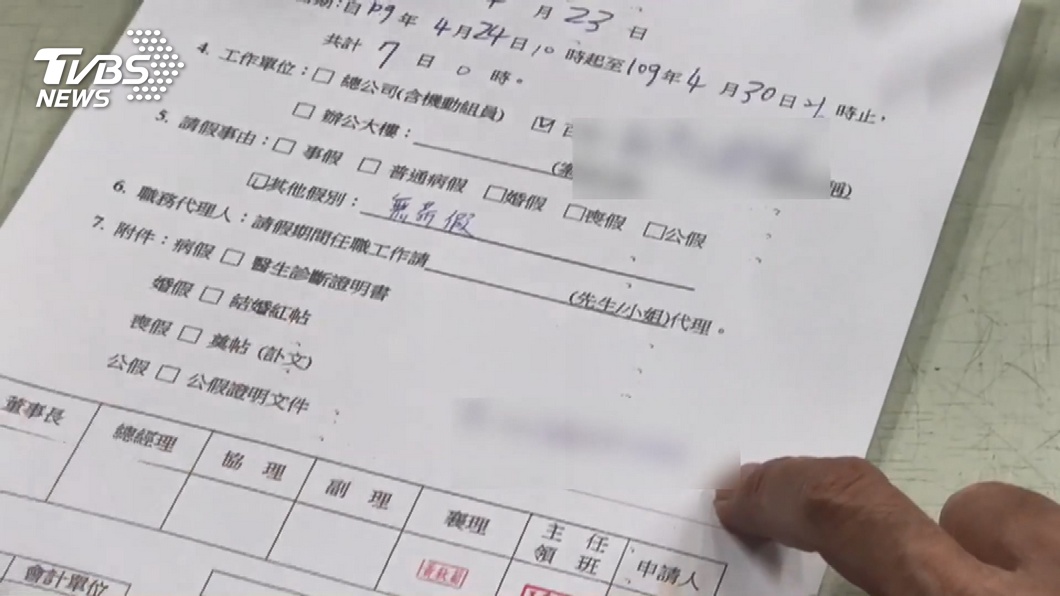 TVBS
NEWS
月23日
期:自109年4月24日10時起至109年4月30日21時止,
共計7日0時。
4. 工作單位:□總公司(含機動組員) ☑
□辦公大樓:
5. 請假事由:□事假 □普通病假 □婚假 □喪假 □公假
☑其他假別:無薪假
6. 職務代理人:請假期間任職工作請 (先生/小姐)代理。
7. 附件:病假□醫生診斷證明書
婚假□結婚紅帖
喪假□奠帖(訃文)
公假□公假證明文件
董事長 總經理 協理 副理 襄理 主任領班 申請人
會計單位